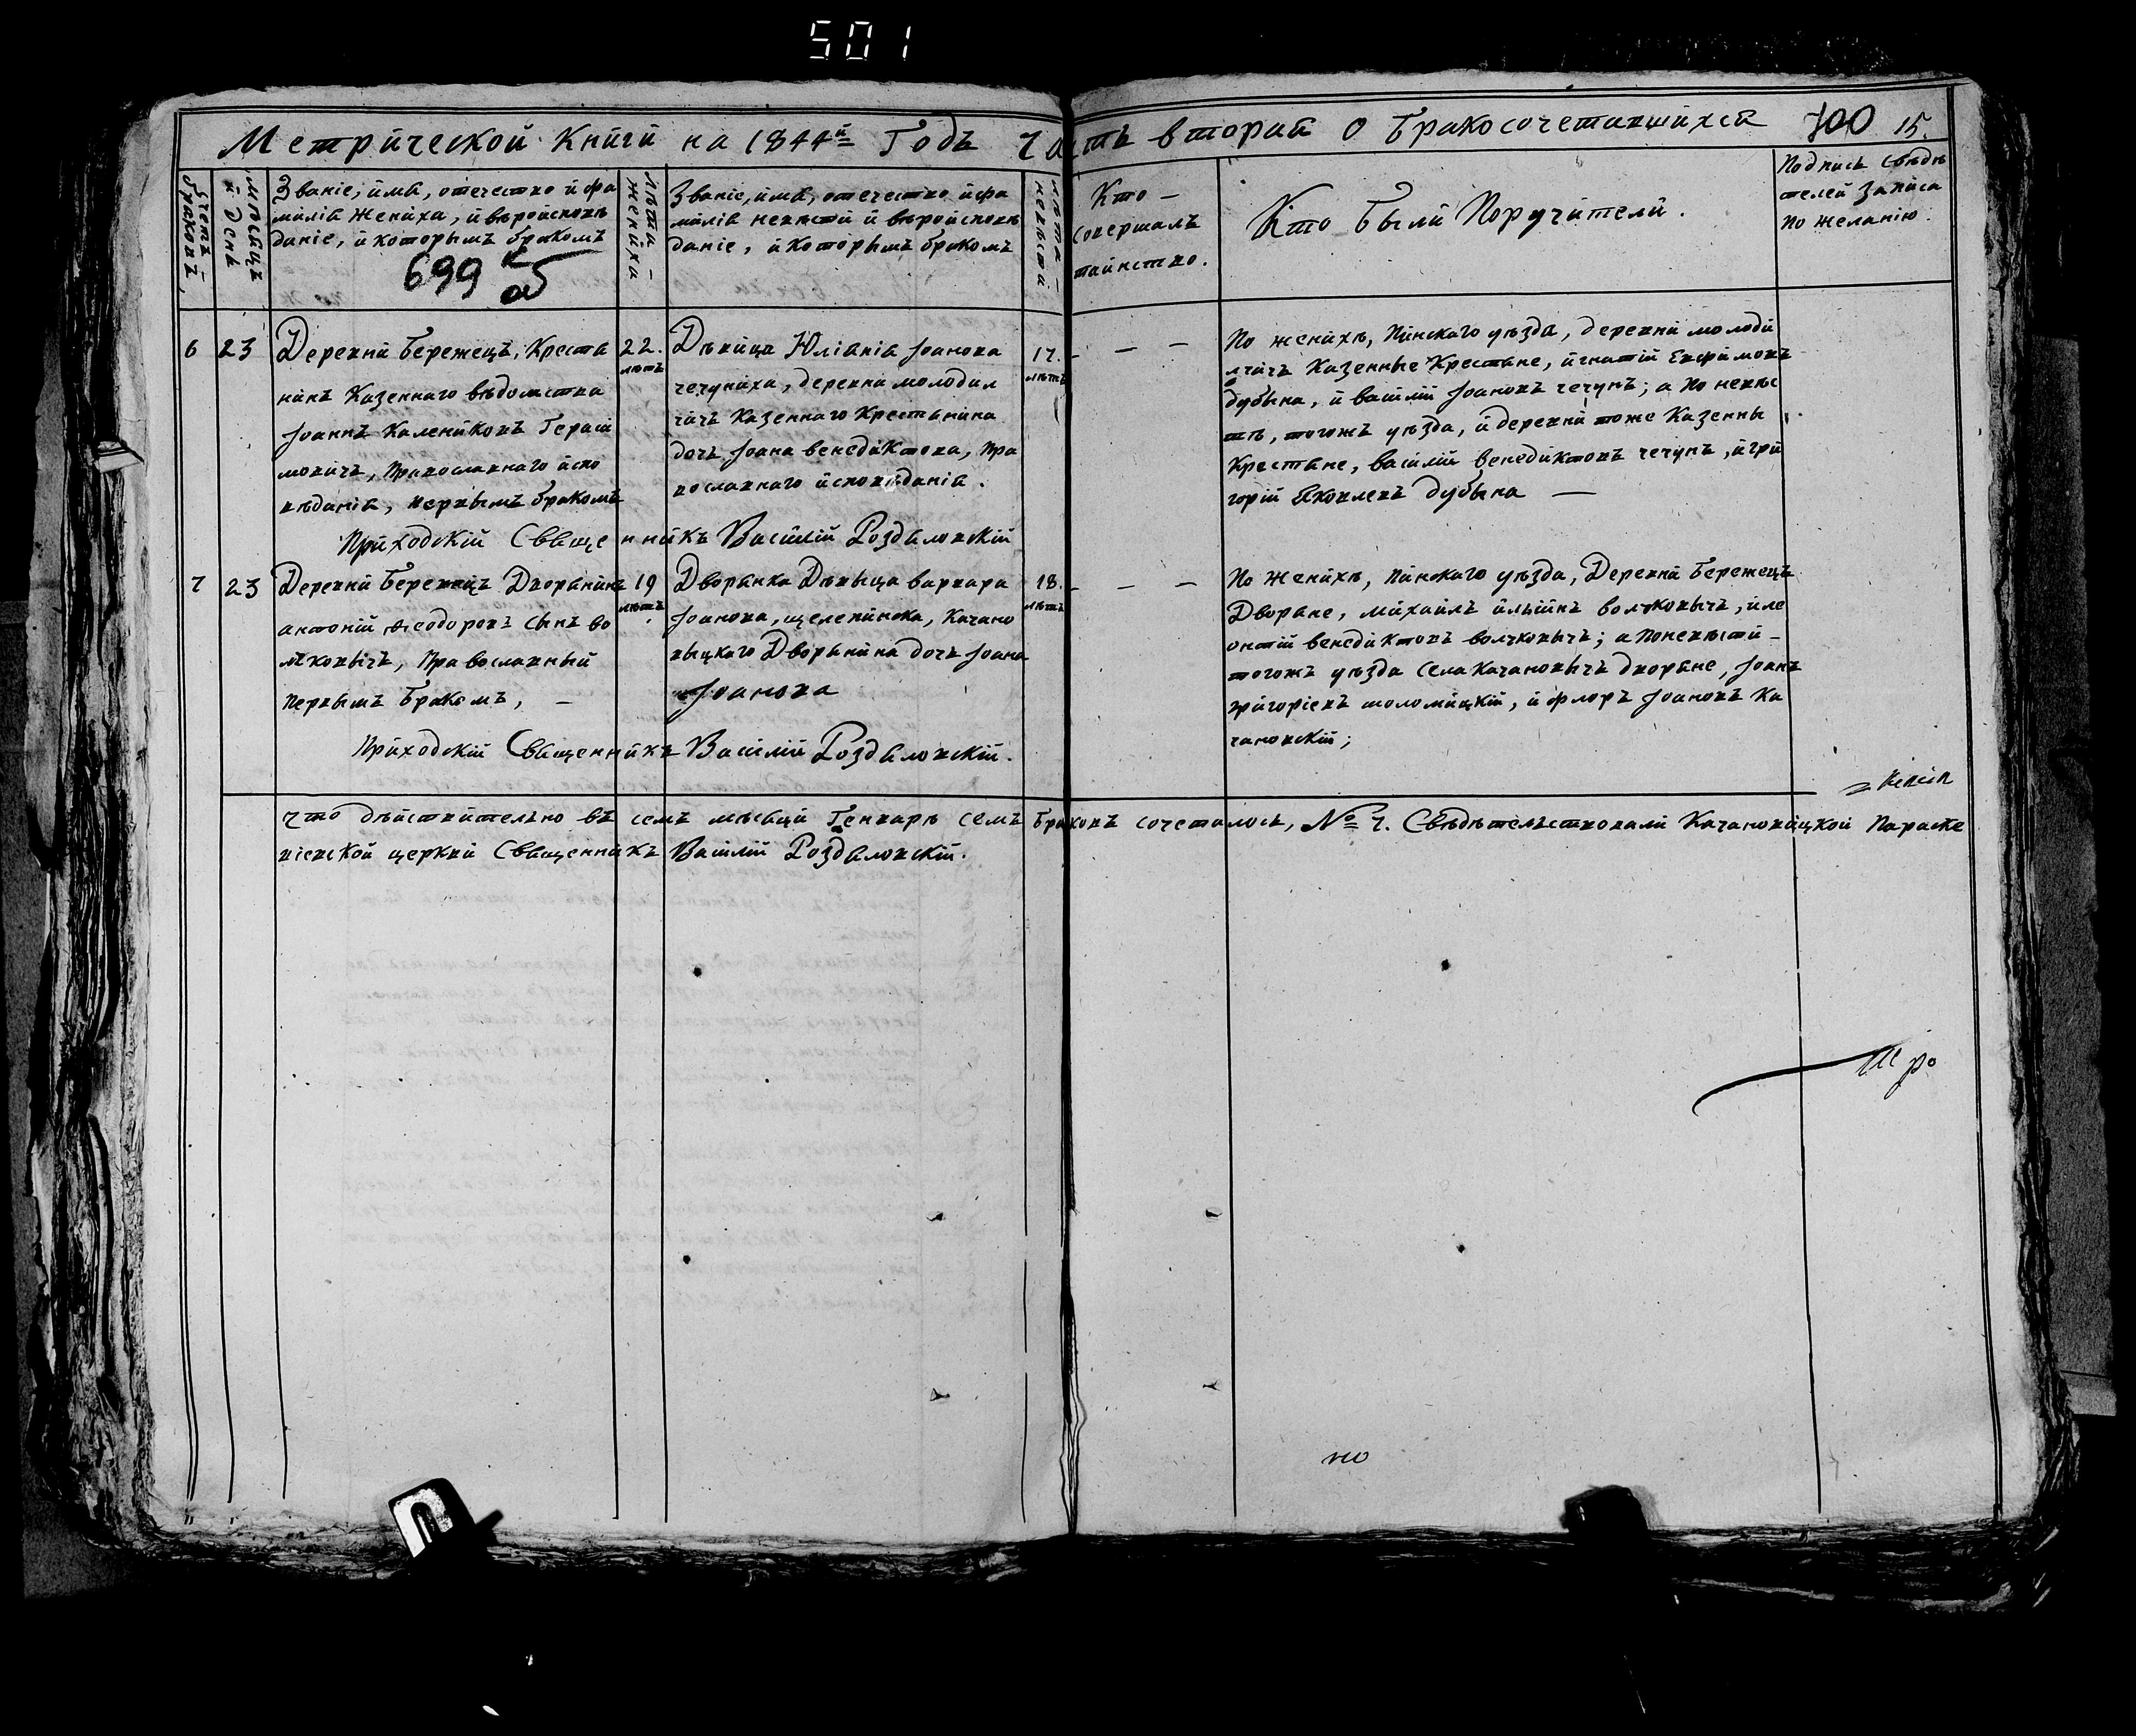 501
Метрической Книги на 1844й Годъ Часть вторая О Бракосочетавшихся 700 15.
Счетъ браковъ
Мѣсяцъ и День
Званіе, имя, отечество и фа
милія жениха, и вѣроисповѣ
даніе, и которымъ бракомъ
699 об
Лѣта жениха
Званіе, имя, отечество и фа
милія невѣсти и вѣроисповѣ
даніе, и которымъ бракомъ
лѣта невѣсти
Кто
совершалъ
таинство.
Кто Были Поручители.
Подпись свѣдѣ
телей записа
по желанію
6
23
Деревни Бережецъ, Крестя
нинъ Казеннаго вѣдомства
Іоаннъ Калениковъ Гераси
мовичъ, православнаго испо
вѣданія, первымъ бракомъ
22.
лѣтъ
Дѣвица Юліанія Іоанова
чечуниха, деревни молодил
чичъ Казеннаго Крестянина
дочь Іоана Венедиктова, пра
вославнаго исповѣданія.
17.
лѣтъ
— — —
По женихѣ, Пинскаго уѣзда, деревни молоди
лчичъ Казенные Крестяне, игнатій Евфимовъ
дубына, и василій Іоановъ чечунъ; а по невѣс
тѣ, тогожъ уѣзда, и деревни тоже Казенны
Крестяне, василій Венедиктовъ чечунъ, и гри
горій Яковлевъ дубына —
Приходскій Священникъ Василій Роздяловскій
7
23
Деревни Бережецъ Дворянинъ
антоній Ѳеодоровъ сынъ во
лчковычъ, Православный
первымъ бракомъ, —
19
лѣтъ
Дворянка Дѣвыца варвара
Іоанова, щелепинска, Качано
выцкаго Дворянина дочь Іоана
Іоанова
18.
лѣтъ
— — —
По женихѣ, Пинскаго уѣзда, Деревни Бережецъ
Дворяне, михаилъ ильинъ волчковычъ, и ле
онтій венедиктовъ волчковычъ; а по невѣсти —
тогожъ уѣзда села Качановычъ дворяне, Іоанъ
григоріевъ шоломицкій, и флоръ Іоановъ Ка
чановскій;
Приходскій Священникъ Василій Роздяловскій.
что дѣйствительно въ семъ мѣсяци Генварѣ семь браковъ сочеталось, № 7. Свѣдѣтельствовали Качановицкой Параске
віевской церкви Священникъ Василій Роздяловскій.